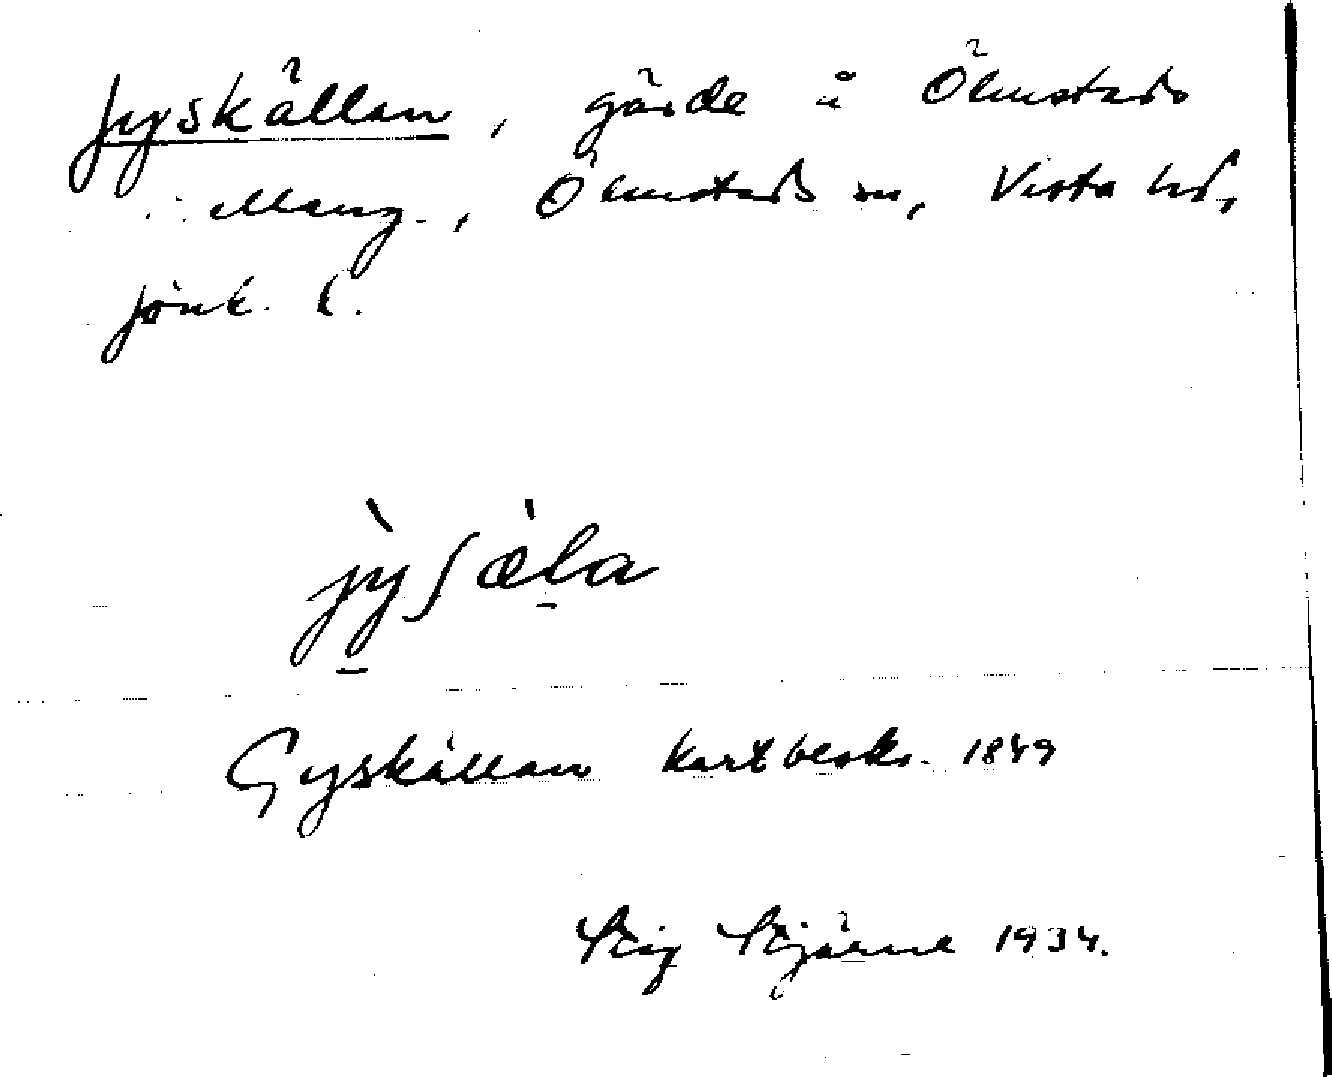 Jyskällan, gärde å Ölmstads
Mang., Ölmstads sn, Vista hd,
Jönk. l.
jỳʃæ̀la
Gyskällan Kartbeskr. 1849
Stig Stjärne 1934.